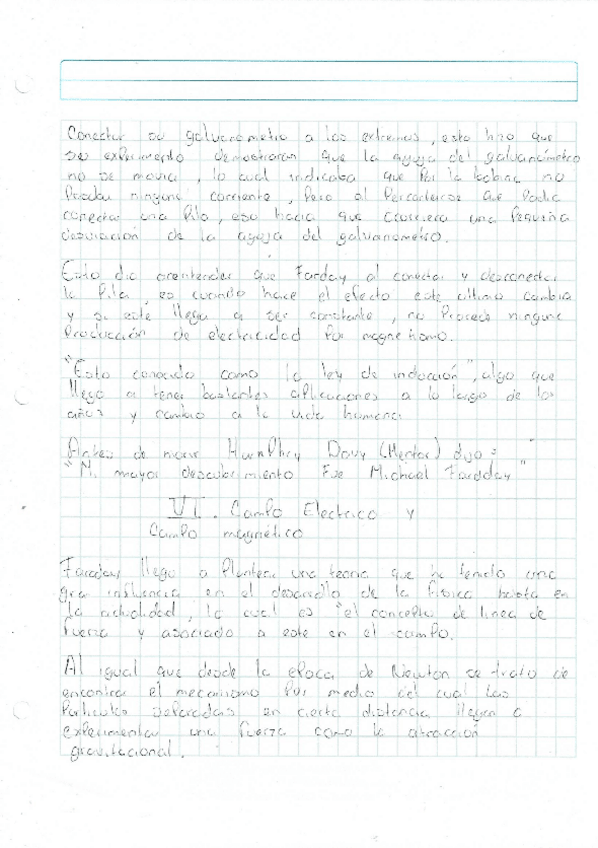 Conectar su galvanometro a los extremos, esto hizo que
su experimento demostraran que la aguja del galvanómetro
no se movia, lo cual indicaba que por la bobina no
Pasaba ninguna corriente, Pero al Percatarse que Podia
conectar una Pila, eso hacia que ocurriera una Pequeña
desviación de la aguja del galvanometro.
Esto dio a entender que Farday al conectar y desconectar
la Pila, es cuando hace el efecto este ultimo cambia
y si este llega a ser constante, no Procede ninguna
Producción de electricidad Por magnetismo.
"Esto conocido como la ley de inducción", algo que
llego a tener bastantes aplicaciones a lo largo de los
años y cambio a la vida humana.
Antes de morir Humphry Davy (Mentor) dijo:
"Mi mayor descubrimiento Fue Michael Fardday"
VI. Campo Electrico y
Campo magnético
Faraday llego a Plantear una teoria que ha tenido una
gra influencia en el desarollo de la fisica hasta en
la actulidad, la cual es "el concepto de linea de
fuerza y asociado a este en el campo.
Al igual que desde la epoca de Newton se trato de
encontrar el mecanismo Por medio del cual las
Particulas separadas en cierta distancia llegan a
experimentar una fuerza como la atracción
gravitacional.